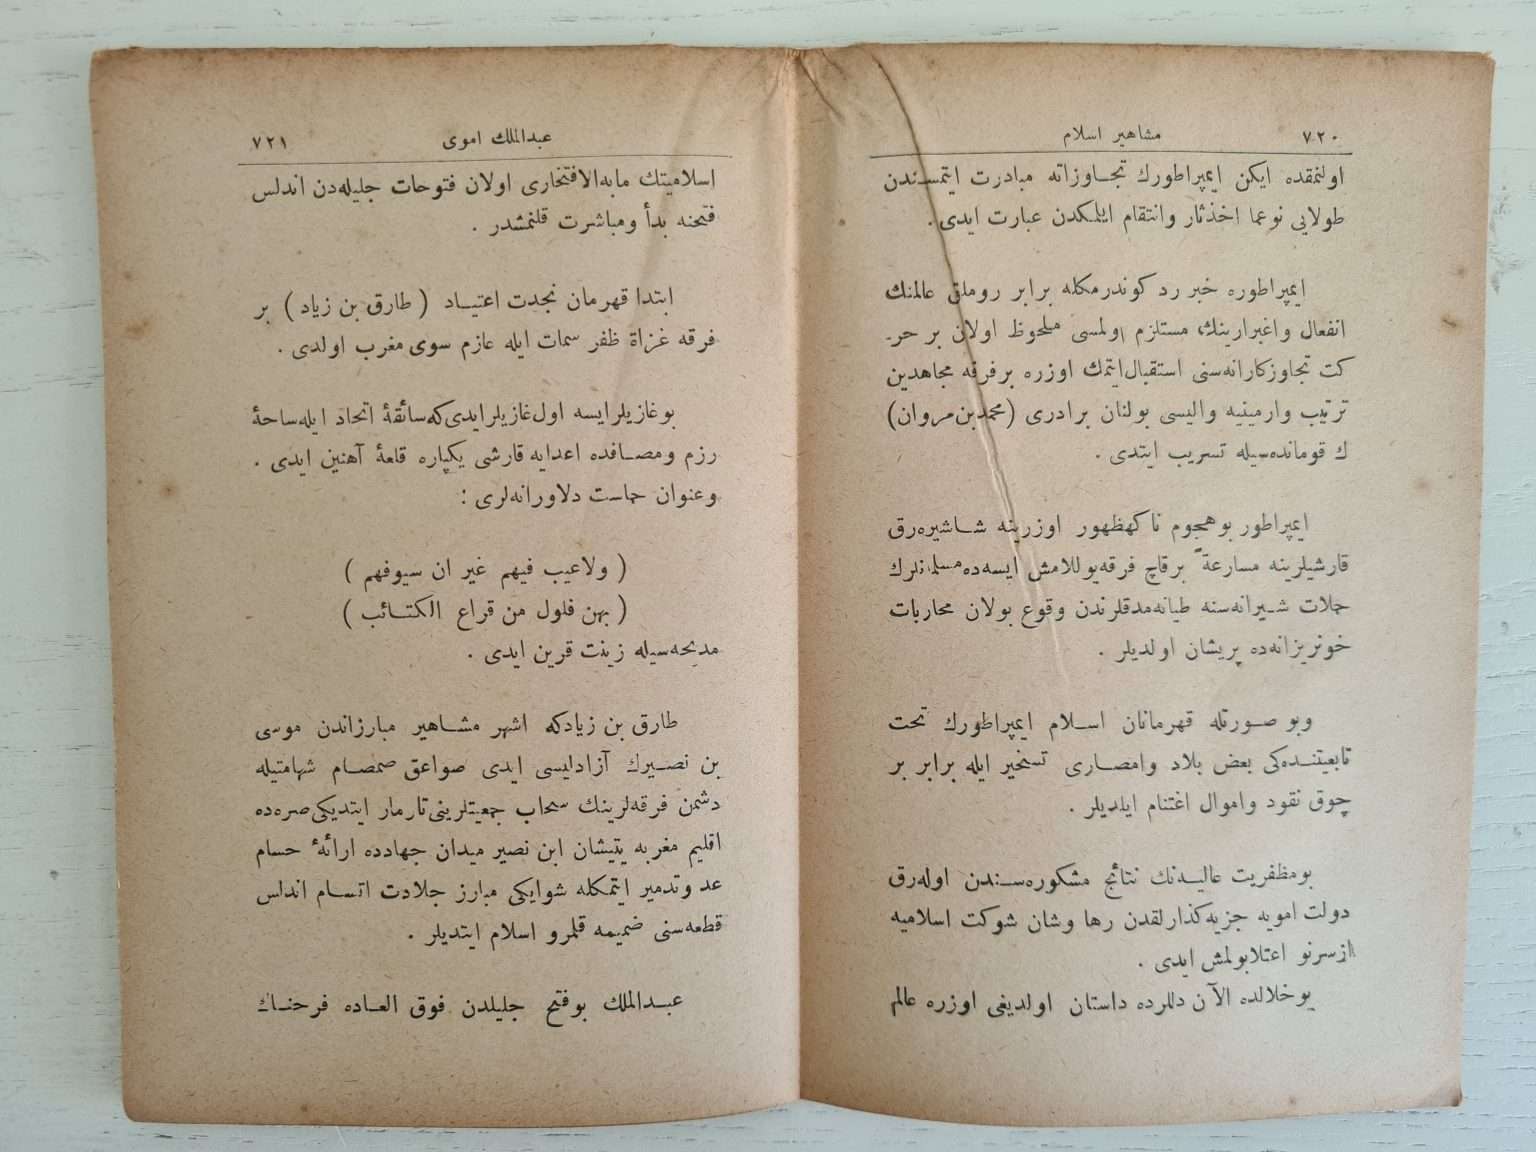 ٧٢٠ مشاهیر اسلام
اولنمقده ایکن ایمپراطورك تجـاوزاته مبادرت ایتمسندن
طولایی نوعما اخذثار وانتقام ایلمکدن عبارت ایدی .
ایمپراطوره خبر رد کوندرمکله برابر روملق عالمنك
انفعال واغبرارینك مستلزم اولمسی ملحوظ اولان بر حر۔
کت تجاوزکارانه‌سنی استقبال‌ایتمك اوزره برفرقه مجاهدین
ترتیب وارمینیه والیسی بولنان برادری (محمدبن‌مروان)
ك قومانده‌سیله تسریب ایتدی .
ایمپراطور بوهجوم ناکهظهور اوزرینه شـاشیره‌رق
قارشیلرینه مسارعةً برقاچ فرقه‌یوللامش ایسه‌ده‌مسلمانلرك
حملات شـیرانه‌سنه طیانه‌مدقلرندن وقوع بولان محاربات
خونریزانه‌ده پریشان اولدیلر .
وبو صـورتله قهرمانان اسـلام ایمپراطورك تحت
تابعیتنـده‌کی بعض بلاد وامصـاری تسخیر ایله برابر بر
چوق نقود واموال اغتنام ایلدیلر .
بومظفریت عالیـه‌نك نتائج مشکوره‌سـندن اوله‌رق
دولت امویه جزیه‌کذارلقدن رها وشان شوکت اسلامیه
ازسرنو اعتلابولمش ایدی .
بوخلالده الآن دللرده داستان اولدیغی اوزره عالم
عبدالملك اموی ٧٢١
اسلامیتك مابه‌الافتخاری اولان فتوحات جلیله‌دن اندلس
فتحنه بدأ ومباشرت قلنمشدر .
ابتدا قهرمان نجدت اعتیـاد ( طارق بن زیاد ) بر
فرقه غزاة ظفر سمات ایله عازم سوی مغرب اولدی .
بوغازیلرایسه اول‌غازیلرایدی‌که‌سائقهٔ اتحاد ایله‌ساحهٔ
رزم ومصـافده اعدایه قارشی یکپاره قلعهٔ آهنین ایدی .
وعنوان حماست دلاورانه‌لری :
( ولاعیب فیهم غیر ان سیوفهم )
( بهن فلول من قراع الکتـائب )
مدیحه‌سیله زینت قرین ایدی .
طارق بن زیادکه اشهر مشـاهیر مبارزاندن موسی
بن نصـیرك آزادلیسی ایدی صواعق صمصـام شهامتیله
دشمن فرقه‌لرینك سحاب جمعیتلرینی‌تارمار ایتدیکی‌صره‌ده
اقلیم مغربه یتیشان ابن نصیر میدان جهادده ارائهٔ حسام
عد وتدمیر ایتمکله شوایکی مبارز جلادت اتسـام اندلس
قطعه‌سنی ضمیمه قلمرو اسلام ایتدیلر .
عبـدالملك بوفتح جلیلدن فوق العـاده فرحنـاك